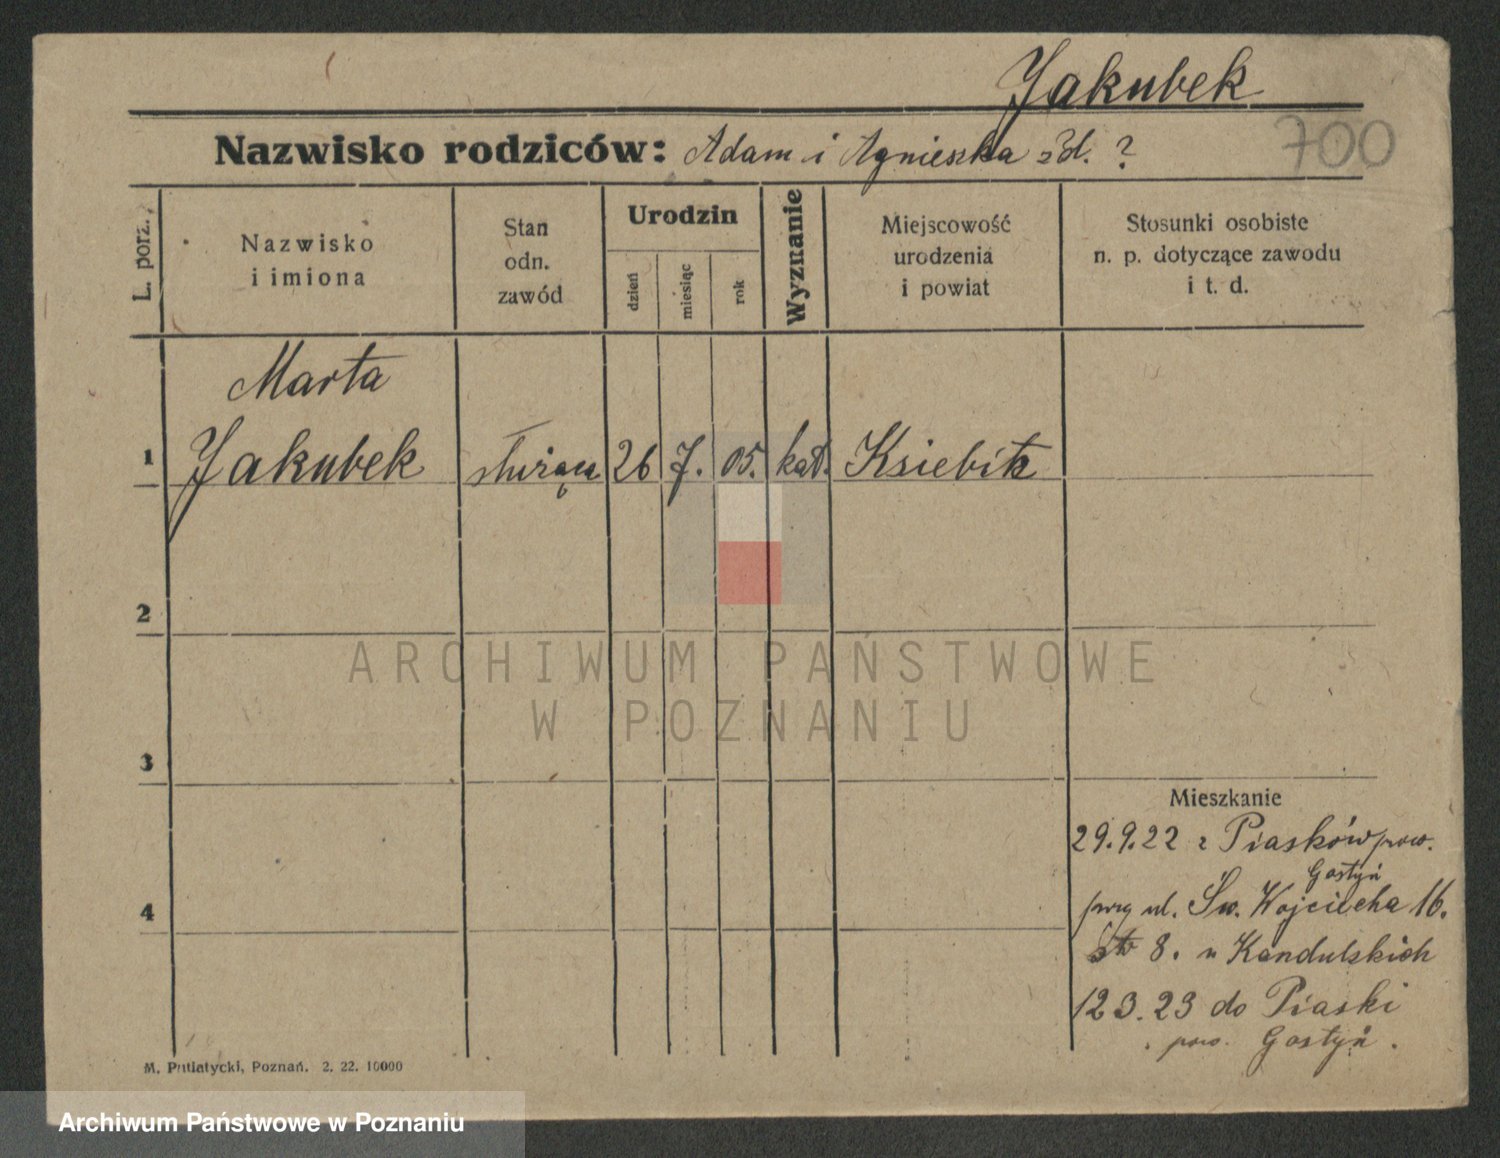 Jakubek
700
Nazwisko rodziców: Adam i Agnieszka zd. ?
L. porz.
Nazwisko
i imiona
Stan
odn.
zawód
Urodzin
dzień
miesiąc
rok
Wyznanie
Miejscowość
urodzenia
i powiat
Stosunki osobiste
n. p. dotyczące zawodu
i t. d.
Marta
1 Jakubek służąca 26 7. 05. kat. Ksiebitz
2
3
4
Mieszkanie
29.9.22 z Piasków pow.
Gostyń
przy ul. Św. Wojciecha 16.
8. u Kandulskich
12 3. 23 do Piaski
pow. Gostyń.
M. Putiatycki, Poznań. 2. 22. 10000
ARCHIWUM PAŃSTWOWE
W POZNANIU
Archiwum Państwowe w Poznaniu